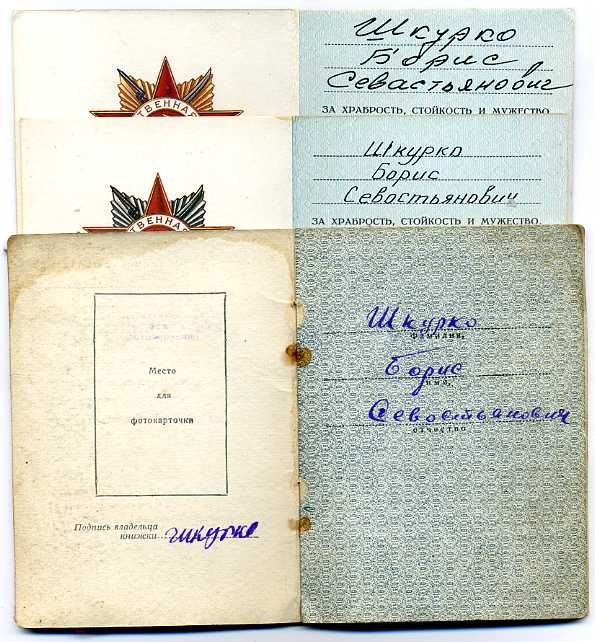 СТВЕННАЯ
Шкурко
Борис
Севастьянович
ЗА ХРАБРОСТЬ, СТОЙКОСТЬ И МУЖЕСТВО,
СТВЕННАЯ
Шкурко
Борис
Севостьянович
ЗА ХРАБРОСТЬ, СТОЙКОСТЬ И МУЖЕСТВО,
Место
для
фотокарточки
Подпись владельца
книжки Шкурко
Шкурко
фамилия,
Борис
имя,
Севостьянович
отчество